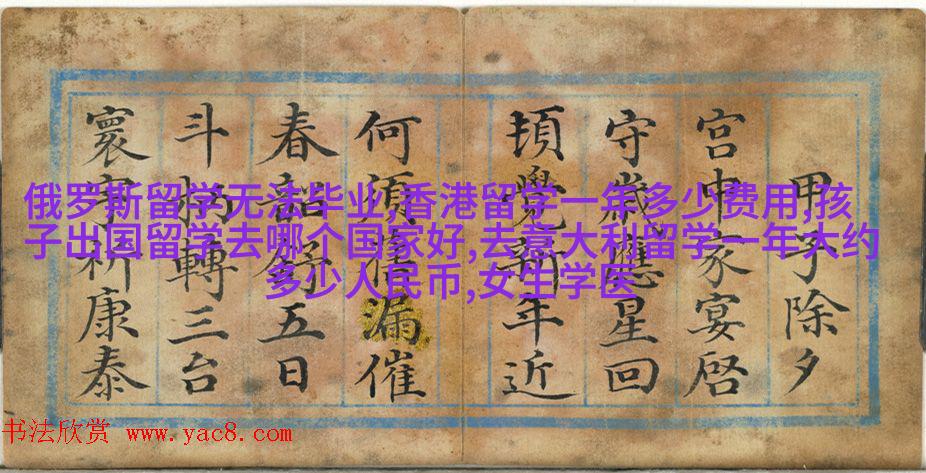 甲子除夕
宫中家宴啓
守歲應星回
頃覺年近
何須漏催
春韶五日
斗柄轉三台
寰宇祈康泰
俄罗斯留学无法毕业,香港留学一年多少费用,孩
子出国留学去哪个国家好,去意大利留学一年大约
多少人民币,女生学医
书法欣赏 www.yac8.com